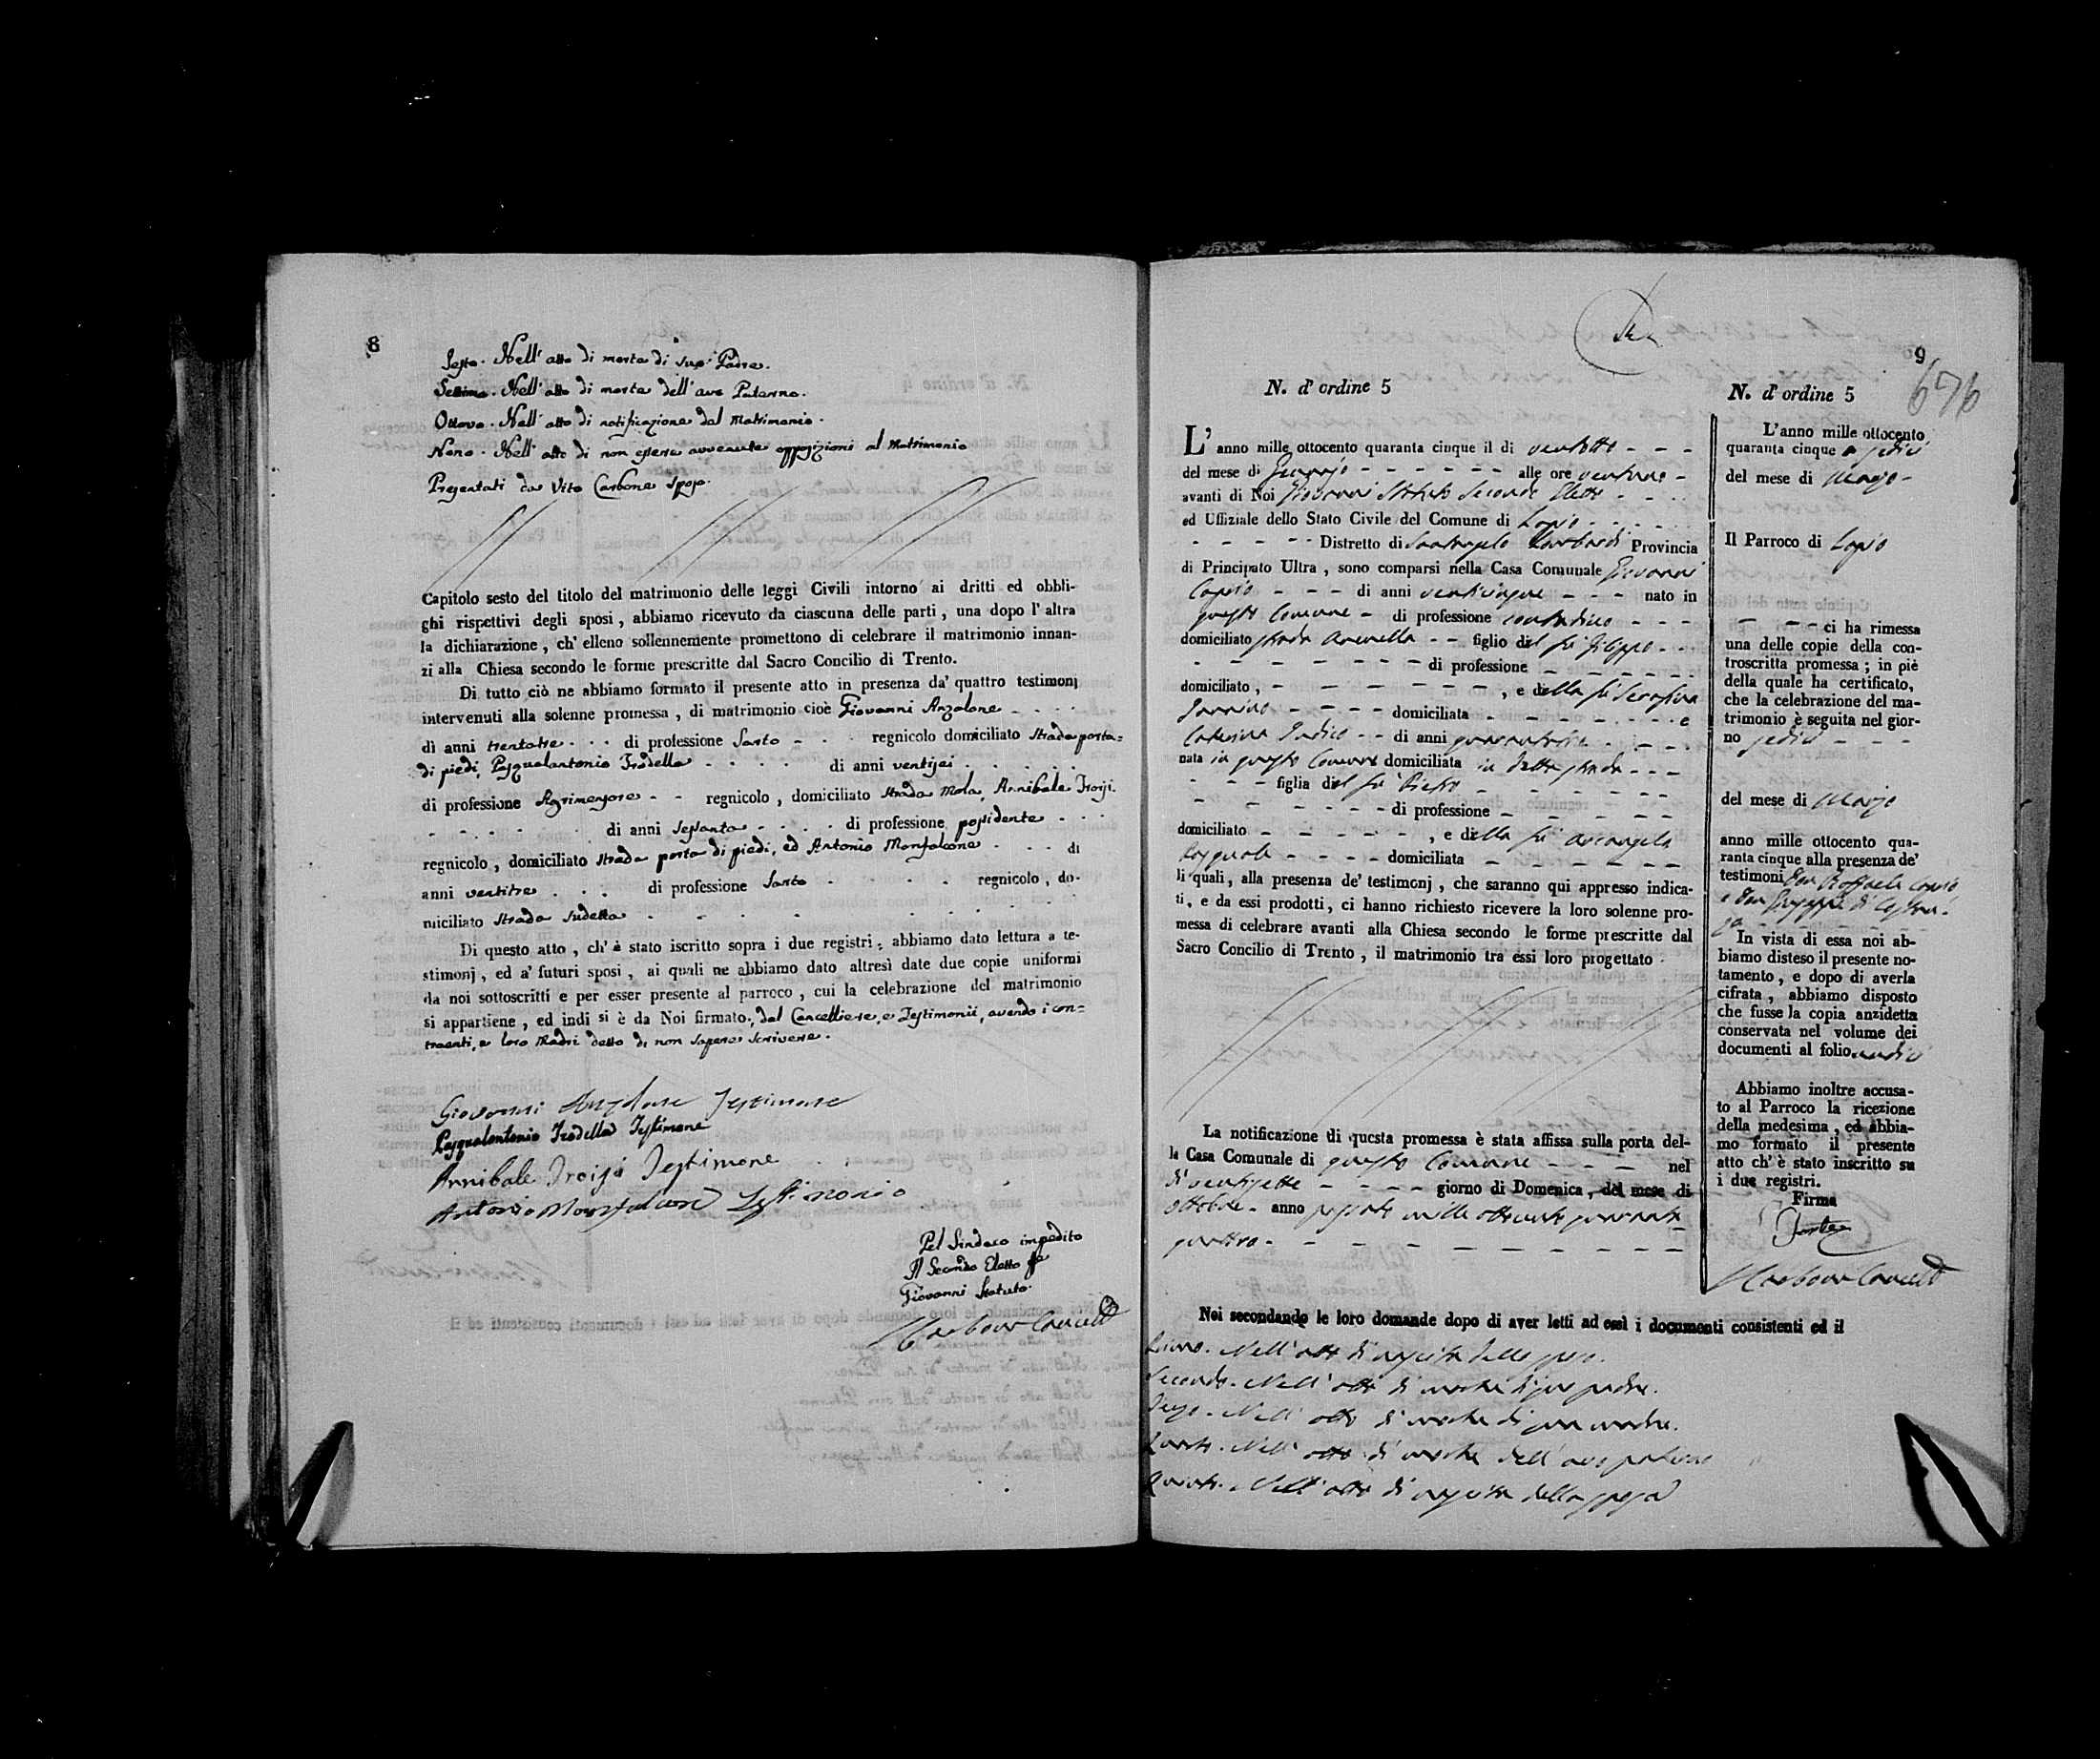 8
Sesto. Nell' atto di morte di suo Padre.
Settimo. Nell' atto di morte dell' avo Paterno.
Ottavo. Nell' atto di notificazione del Matrimonio.
Nono. Nell' atto di non essere avvenute opposizioni al Matrimonio
Presentati da Vito Carbone Sposo.
Capitolo sesto del titolo del matrimonio delle leggi Civili intorno ai dritti ed obbli-
ghi rispettivi degli sposi, abbiamo ricevuto da ciascuna delle parti, una dopo l' altra
la dichiarazione, ch' elleno sollennemente promettono di celebrare il matrimonio innan-
zi alla Chiesa secondo le forme prescritte dal Sacro Concilio di Trento.
Di tutto ciò ne abbiamo formato il presente atto in presenza da' quattro testimonj
intervenuti alla solenne promessa, di matrimonio cioè Giovanni Anzalone
di anni trentatre di professione Sarto regnicolo domiciliato Strada porta=
di piedi, Pasqualantonio Iradella di anni ventisei
di professione Agrimensore regnicolo, domiciliato Strada Mola, Annibale Troisi
di anni Sessanta di professione possidente
regnicolo, domiciliato Strada porta di piedi, ed Antonio Monfalcone di
anni ventitre di professione Sarto regnicolo, do-
miciliato Strada Sudetta
Di questo atto, ch' è stato iscritto sopra i due registri, abbiamo dato lettura a te-
stimonj, ed a' futuri sposi, ai quali ne abbiamo dato altresì date due copie uniformi
da noi sottoscritti e per esser presente al parroco, cui la celebrazione del matrimonio
si appartiene, ed indi si è da Noi firmato, dal Cancelliere, e Testimonii, avendo i con=
traenti, e loro Madri detto di non sapere scrivere.
Giovanni Anzalone Testimone
Pasqualantonio Iradella Testimone
Annibale Troisi Testimone
Antonio Monfalcone Testimonio
Pel Sindaco impedito
Il Secondo Eletto
Giovanni Statuto
9
676
N. d' ordine 5
L' anno mille ottocento quaranta cinque il dì ventotto
del mese di Gennajo alle ore ventuno
avanti di Noi Giovanni Statuto Secondo Eletto
ed Uffiziale dello Stato Civile del Comune di Lapio
Distretto di Santangelo Lombardi Provincia
di Principato Ultra, sono comparsi nella Casa Comunale Giovanni
Caprio di anni venticinque nato in
questo Comune di professione contadino
domiciliato strada Arenella figlio del fu Filippo
di professione
domiciliato, , e della fu Serafina
domiciliata e
Caterina di anni
nata in questo Comune domiciliata in detta strada
figlia del fu Pietro
di professione
domiciliato , e della fu Arcangela
Pasquale domiciliata
li quali, alla presenza de' testimonj, che saranno qui appresso indica-
ti, e da essi prodotti, ci hanno richiesto ricevere la loro solenne pro-
messa di celebrare avanti alla Chiesa secondo le forme prescritte dal
Sacro Concilio di Trento, il matrimonio tra essi loro progettato.
La notificazione di questa promessa è stata affissa sulla porta del-
la Casa Comunale di questo Comune nel
dì ventisette giorno di Domenica, del mese di
ottobre anno passato mille ottocento quaranta
quattro
Noi secondando le loro domande dopo di aver letti ad essi i documenti consistenti ed il
Primo. Nell' atto di nascita dello sposo.
Secondo. Nell' atto di morte di suo padre.
Terzo. Nell' atto di morte di sua madre.
Quarto. Nell' atto di morte dell' avo paterno
Quinto. Nell' atto di nascita della sposa
N. d' ordine 5
L' anno mille ottocento
quaranta cinque a sedici
del mese di Marzo
Il Parroco di Lapio
ci ha rimessa
una delle copie della con-
troscritta promessa; in piè
della quale ha certificato,
che la celebrazione del ma-
trimonio è seguita nel gior-
no sedici
del mese di Marzo
anno mille ottocento qua-
ranta cinque alla presenza de'
testimoni Don Raffaele Caprio
e Don Giuseppe di
In vista di essa noi ab-
biamo disteso il presente no-
tamento, e dopo di averla
cifrata, abbiamo disposto
che fusse la copia anzidetta
conservata nel volume dei
documenti al folio undici
Abbiamo inoltre accusa-
to al Parroco la ricezione
della medesima, ed abbia-
mo formato il presente
atto ch' è stato inscritto su
i due registri.
Firma